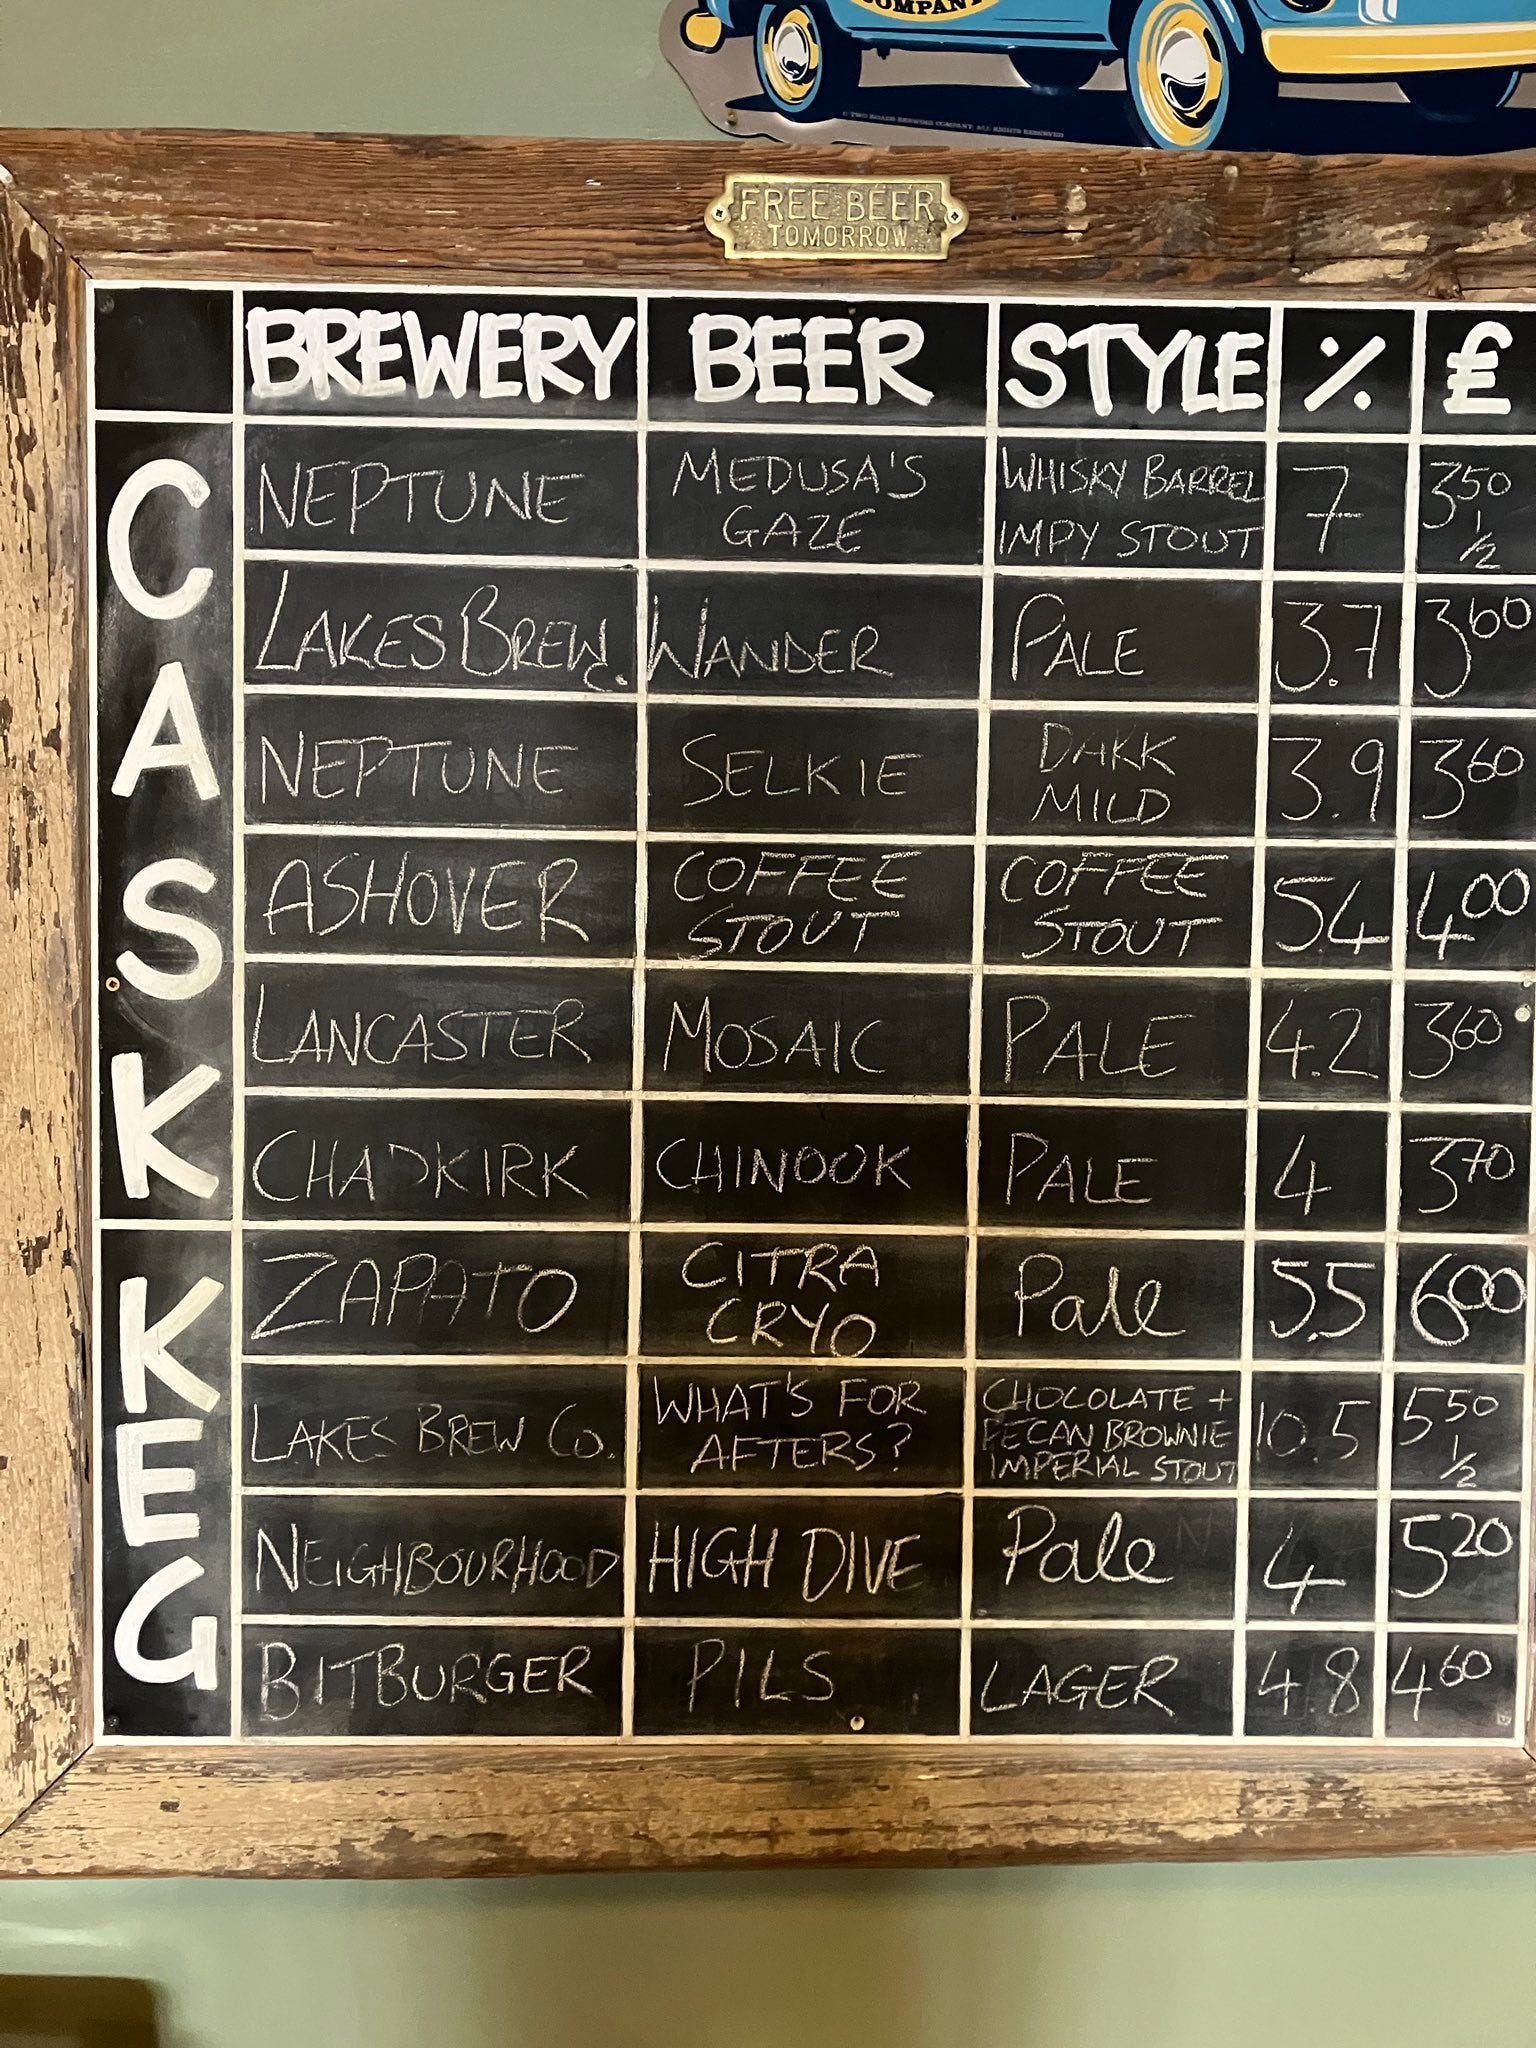 COMPANY
© TWO ROADS BREWING COMPANY, ALL RIGHTS RESERVED
FREE BEER
TOMORROW
BREWERY BEER STYLE % £
CASK
NEPTUNE MEDUSA'S GAZE WHISKY BARREL IMPY STOUT 7 3.50 1/2
LAKES BREW. WANDER PALE 3.7 3.60
NEPTUNE SELKIE DARK MILD 3.9 3.60
ASHOVER COFFEE STOUT COFFEE STOUT 5.4 4.00
LANCASTER MOSAIC PALE 4.2 3.60
CHADKIRK CHINOOK PALE 4 3.70
KEG
ZAPATO CITRA CRYO Pale 5.5 6.00
LAKES BREW Co. WHAT'S FOR AFTERS? CHOCOLATE + PECAN BROWNIE IMPERIAL STOUT 10.5 5.50 1/2
NEIGHBOURHOOD HIGH DIVE Pale 4 5.20
BITBURGER PILS LAGER 4.8 4.60